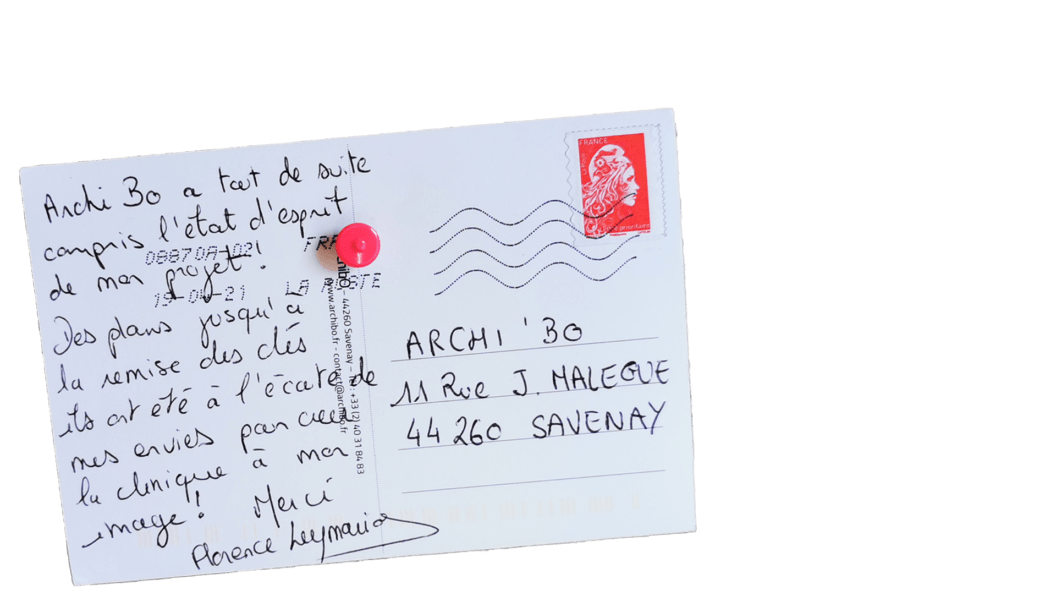 Archi Bo a tout de suite
compris l'état d'esprit
de mon projet !
Des plans jusqu'à
la remise des clés
ils ont été à l'écoute de
mes envies pour créer
la clinique à mon
image !
Merci
Florence Leymarie
08870A-02
19-04-21
LA POSTE
- 44260 Savenay - Tél : +33 (2) 40 31 84 83
www.archibo.fr - contact@archibo.fr
FRANCE
ARCHI 'BO
11 Rue J. MALEGUE
44 260 SAVENAY